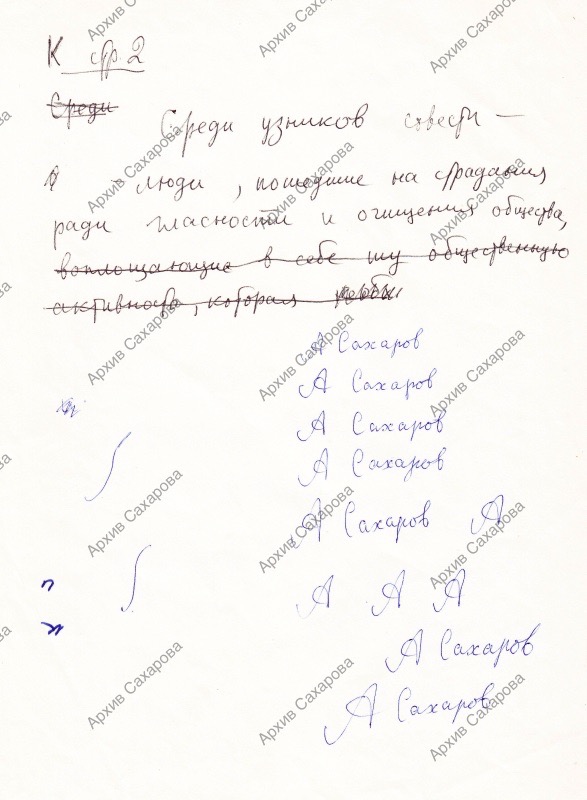 К стр. 2
Среди
Среди узников совести —
люди, пошедшие на страдания
ради гласности и очищения общества,
воплощающие в себе ту общественную
активность, которая
А Сахаров
А Сахаров
А Сахаров
А Сахаров
А Сахаров А
А А А
А Сахаров
А Сахаров
Архив Сахарова